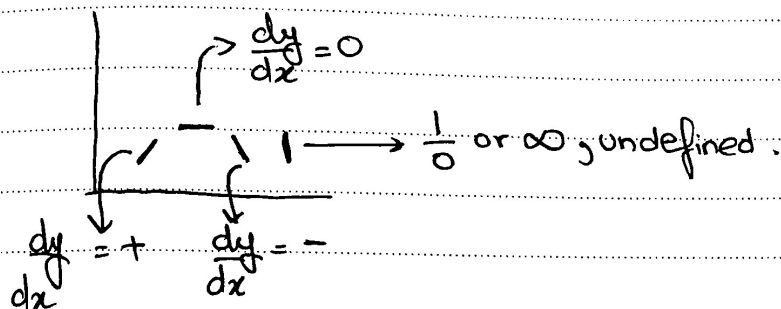 dy/dx = 0
1/0 or ∞, undefined.
dy/dx = + dy/dx = -